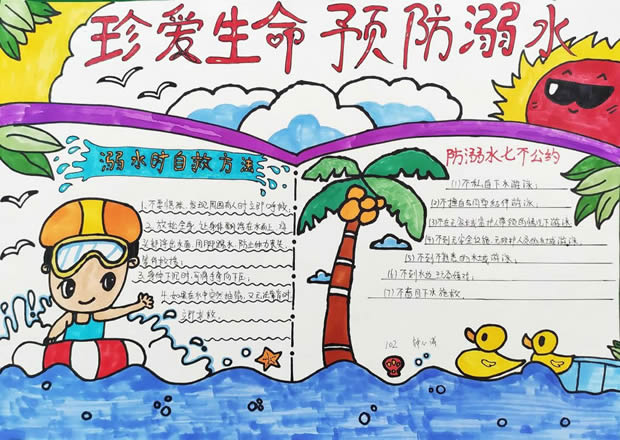 珍爱生命 预防溺水
溺水时自救方法
1.不要慌张,发现周围有人时立即呼救
2.放松全身,让身体漂浮在水面上,将
头部浮出水面,用脚踢水,防止体力丧失,
等待救援;
3.身体下沉时,可将手掌向下压;
4.如果在水中突然抽筋,又无法靠岸时
立即求救
防溺水七不公约
(1)不私自下水游泳;
(2)不擅自与同学结伴游泳;
(3)不在无家长或老师带领的情况下游泳
(4)不到无安全设施、无救护人员的水域游泳;
(5)不到不熟悉的水域游泳;
(6)不到水边玩耍嬉戏;
(7)不盲目下水施救.
102